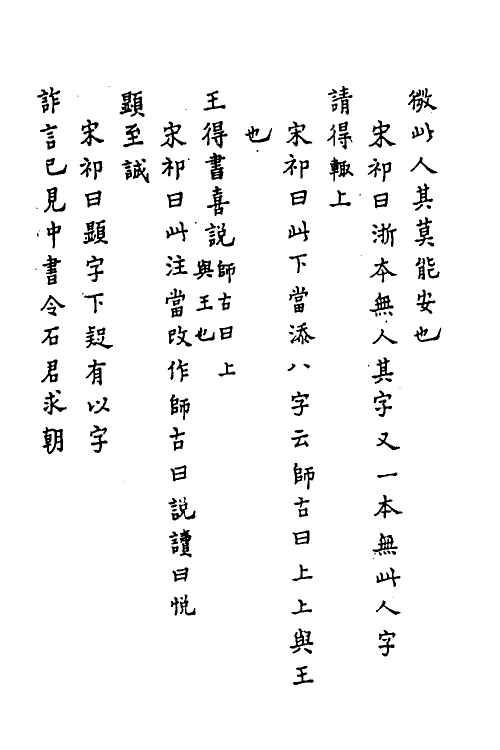 微此人其莫能安也
宋祁曰浙本無人其字又一本無此人字
請得輙上
宋祁曰此下當添八字云師古曰上上與王
也
王得書喜說師古曰上與王也
宋祁曰此注當改作師古曰説讀曰悦
顯至誠
宋祁曰顯字下疑有以字
詐言已見中書令石君求朝